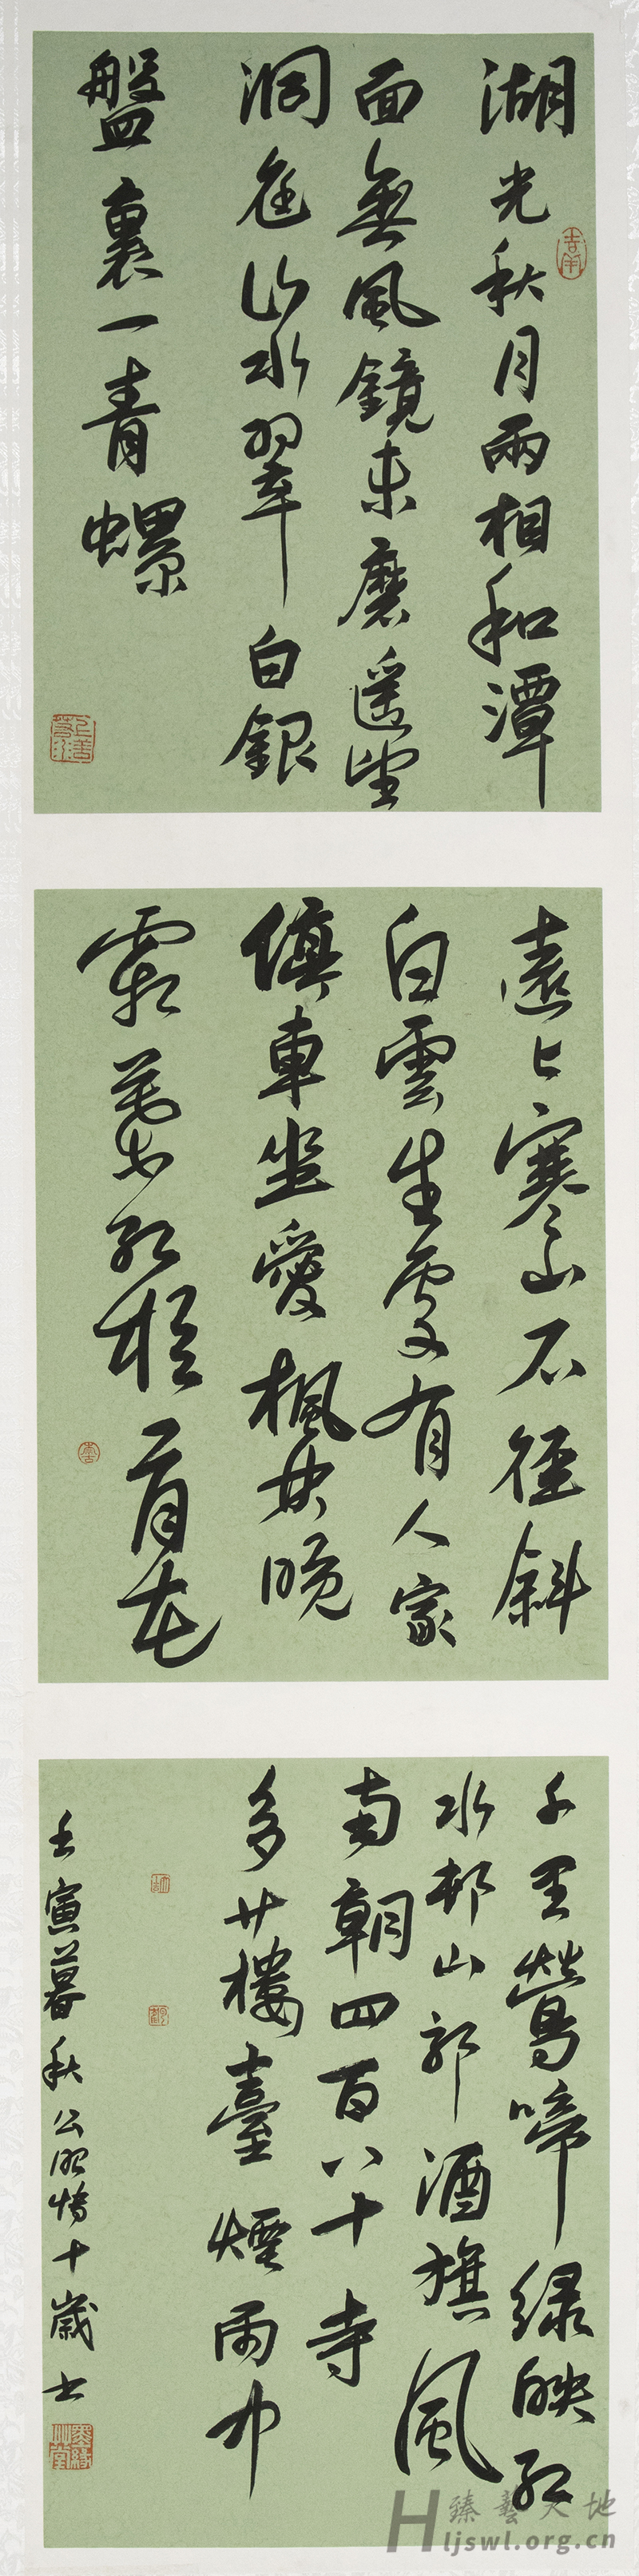 湖光秋月兩相和潭
面無風鏡未磨遥望
洞庭山水翠白銀
盤裏一青螺
吉羊
上善若水
遠上寒山石徑斜
白雲生處有人家
停車坐愛楓林晚
霜葉紅於二月花
千里鶯啼緑映紅
水邨山郭酒旗風
南朝四百八十寺
多少樓臺煙雨中
壬寅暮秋公十歲書
臻藝天地
Hljswl.org.cn